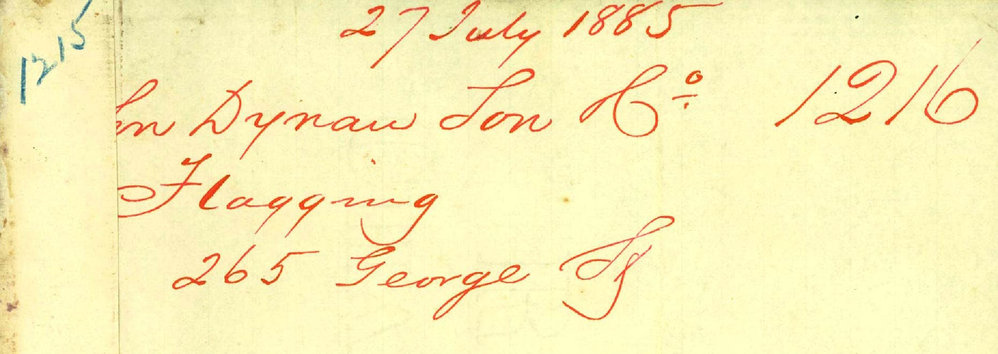 1215
27 July 1885
hn Dynau Son & Co. 1216
Flagging
265 George St